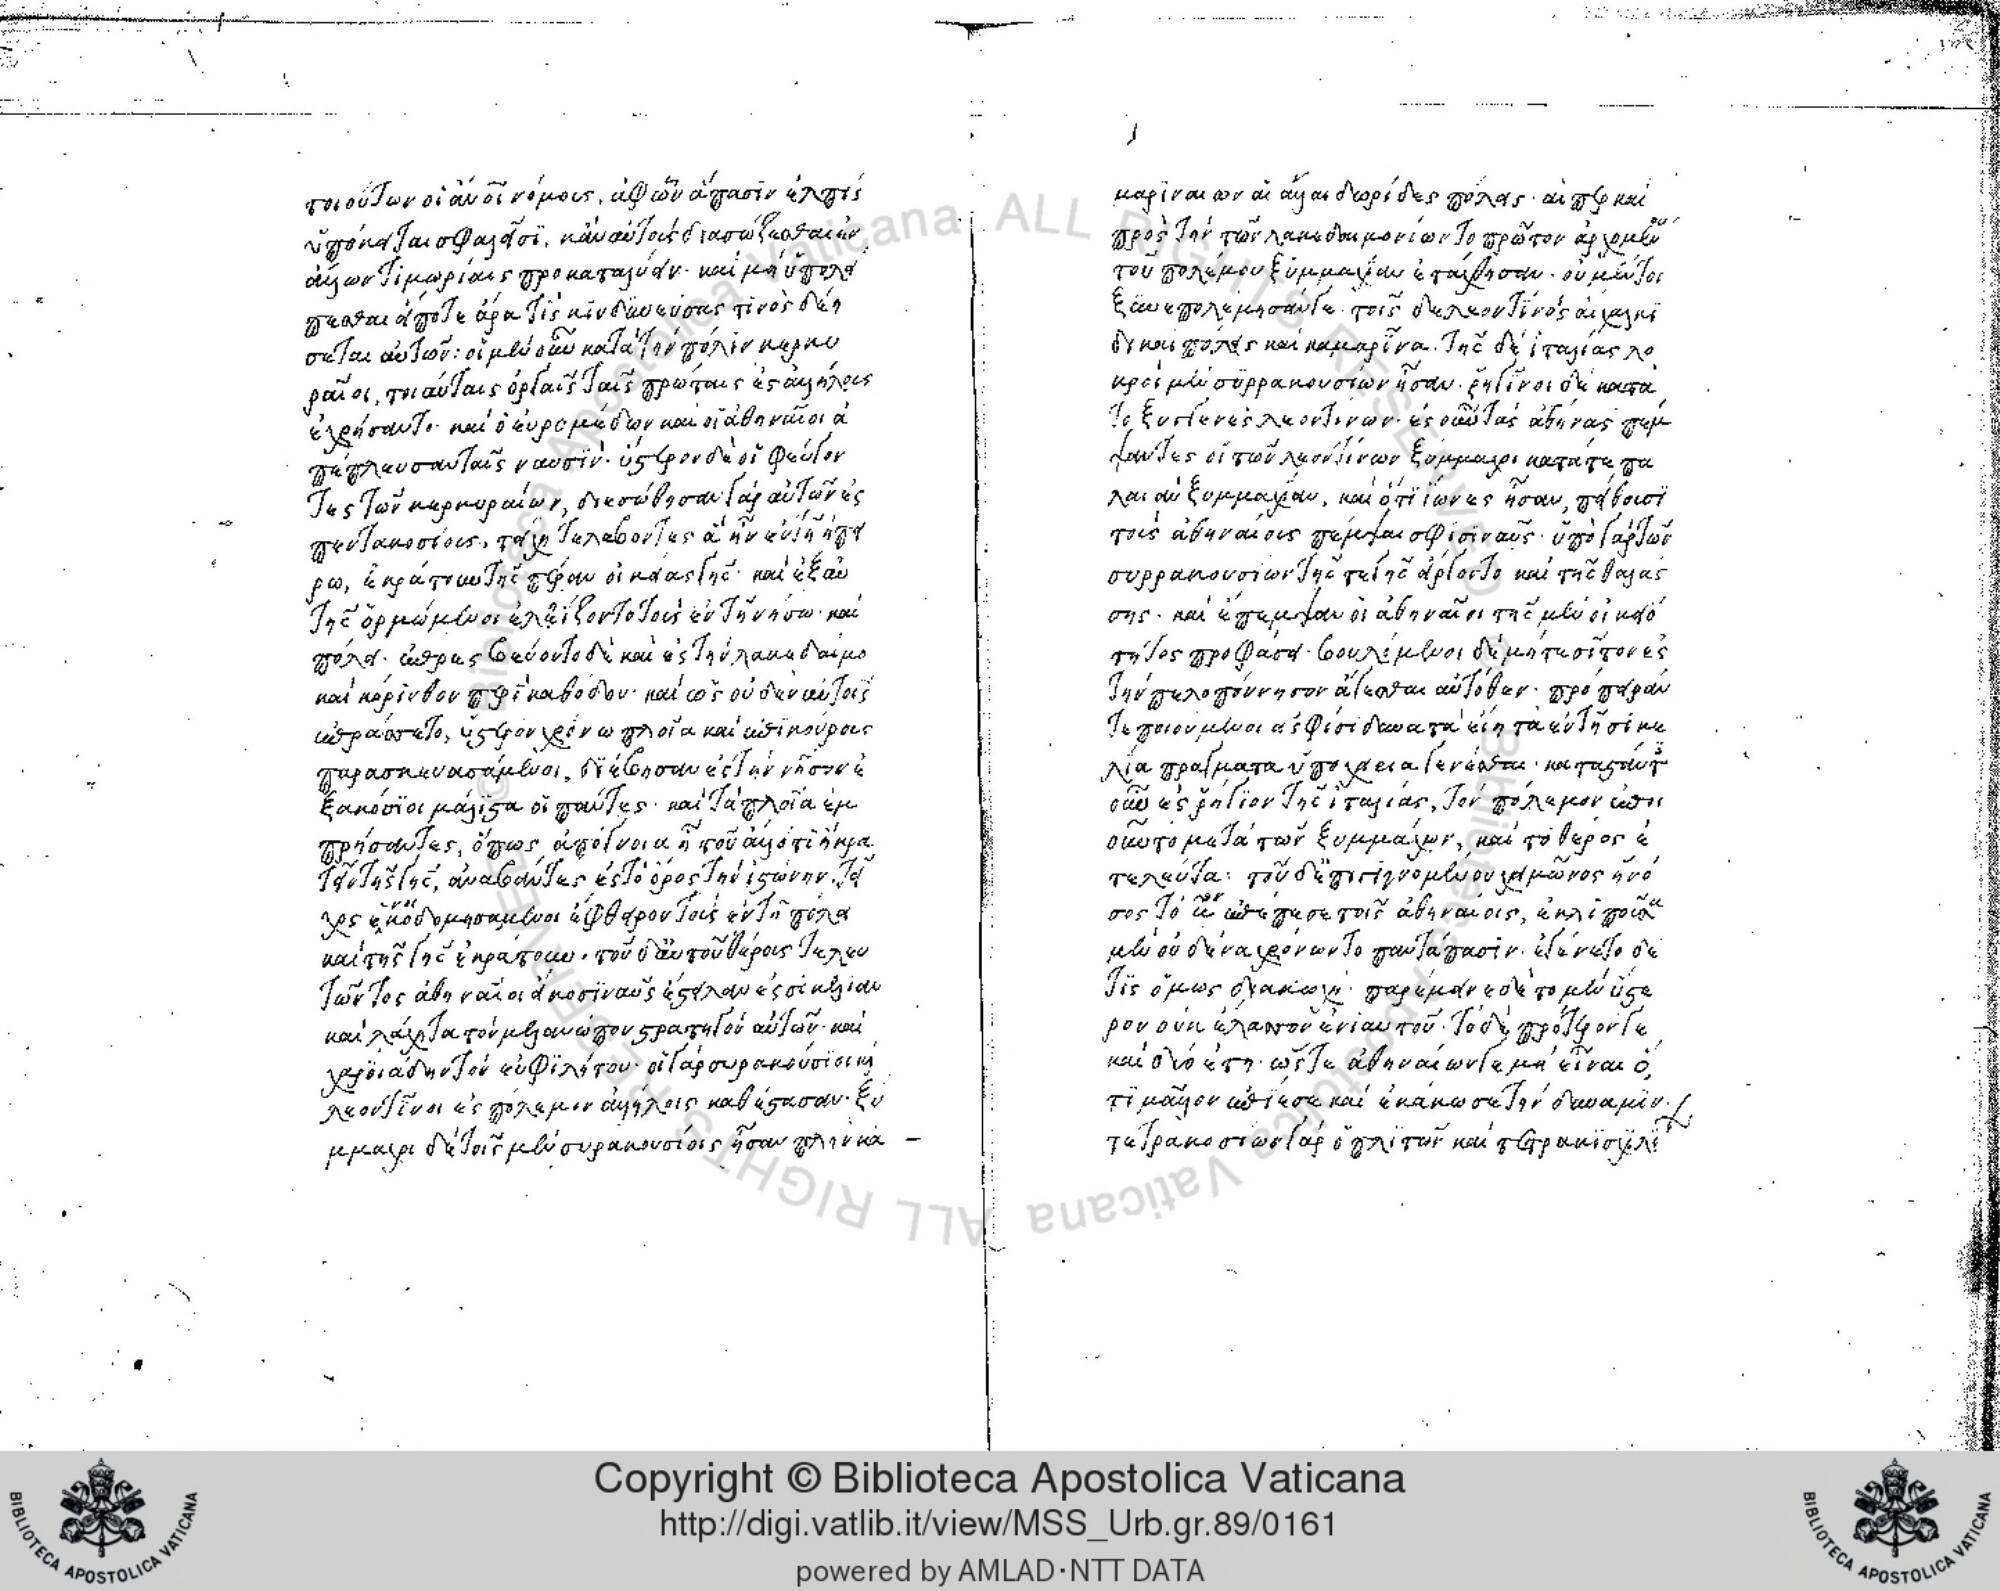 τοιούτων οἱ ἂν οἳ νόμοις, ἀφ' ὧν ἅπασιν ἐλπὶς
ὑπόκειται σφαλεῖσι, κἂν αὐτοὺς διασώζεσθαι ἐν
ἄλλων τιμωρίαις προκαταλύειν· καὶ μὴ ὑπολεί
πεσθαι εἴ ποτε ἄρα τίς κινδυνεύσας τινὸς δεή
σεται αὐτῶν: οἱ μὲν οὖν κατὰ τὴν πόλιν κερκυ
ραῖοι, τοιαύταις ὀργαῖς ταῖς πρώταις ἐς ἀλλήλους
ἐχρήσαντο· καὶ ὁ εὐρυμέδων καὶ οἱ ἀθηναῖοι ἀ
πέπλευσαν ταῖς ναυσίν· ὕστερον δὲ οἱ φεύγον
τες τῶν κερκυραίων, διεσώθησαν γὰρ αὐτῶν ἐς
πεντακοσίους, τείχη τε λαβόντες ἃ ἦν ἐν τῇ ἠπεί
ρω, ἐκράτουν τῆς πέραν οἰκείας γῆς· καὶ ἐξ αὐ
τῆς ὁρμώμενοι ἐληΐζοντο τοὺς ἐν τῇ νήσω· καὶ
πόλει· ἐπρεσβεύοντο δὲ καὶ ἐς τὴν λακεδαίμο
καὶ κόρινθον περὶ καθόδου· καὶ ὡς οὐδὲν αὐτοῖς
ἐπράσσετο, ὕστερον χρόνω πλοῖα καὶ ἐπικούρους
παρασκευασάμενοι, διέβησαν ἐς τὴν νῆσον ἑ
ξακόσιοι μάλιστα οἱ πάντες· καὶ τὰ πλοῖα ἐμ
πρήσαντες, ὅπως ἀπόγνοια ἦ τοῦ ἄλλο τι ἢ κρα
τεῖν τῆς γῆς, ἀναβάντες ἐς τὸ ὄρος τὴν ἰστώνην, τεῖ
χος ἐνοικοδομησάμενοι ἔφθειρον τοὺς ἐν τῇ πόλει
καὶ τῆς γῆς ἐκράτουν· τοῦ δ' αὐτοῦ θέρους τελευ
τῶντος ἀθηναῖοι εἴκοσι ναῦς ἔστειλαν ἐς σικελίαν
καὶ λάχητα τὸν μελανώπου στρατηγὸν αὐτῶν· καὶ
χαροιάδην τὸν εὐφιλήτου· οἱ γὰρ συρακούσιοι καὶ
λεοντῖνοι ἐς πόλεμον ἀλλήλοις καθέστασαν· ξύ
μμαχοι δὲ τοῖς μὲν συρακουσίοις ἦσαν πλὴν κα
μαρίναιων αἱ ἄλλαι δωρίδες πόλεις· αἵ περ καὶ
πρὸς τὴν τῶν λακεδαιμονίων τὸ πρῶτον ἀρχομένου
τοῦ πολέμου ξυμμαχίαν ἐτάχθησαν· οὐ μέντοι
ξυνεπολέμησάν γε· τοῖς δὲ λεοντίνοις αἱ χαλκι
δικαὶ πόλεις καὶ καμαρῖνα· τῆς δὲ ἰταλίας λο
κροὶ μὲν συρρακουσίων ἦσαν· ῥηγῖνοι δὲ κατὰ
τὸ ξυγγενὲς λεοντίνων· ἐς οὖν τὰς ἀθήνας πέμ
ψαντες οἱ τῶν λεοντίνων ξύμμαχοι κατά τε πα
λαιὰν ξυμμαχίαν, καὶ ὅτι ἴωνες ἦσαν, πείθουσι
τοὺς ἀθηναίους πέμψαι σφίσι ναῦς· ὑπὸ γὰρ τῶν
συρρακουσίων τῆς τε γῆς εἴργοντο καὶ τῆς θαλάσ
σης· καὶ ἔπεμψαν οἱ ἀθηναῖοι τῆς μὲν οἰκειό
τητος προφάσει· βουλόμενοι δὲ μήτε σῖτον ἐς
τὴν πελοπόννησον ἄγεσθαι αὐτόθεν· πρόπειράν
τε ποιούμενοι εἰ σφίσι δυνατὰ εἴη τὰ ἐν τῇ σικε
λία πράγματα ὑποχείρια γενέσθαι· καταστάντες
οὖν ἐς ῥήγιον τῆς ἰταλίας, τὸν πόλεμον ἐποι
οῦντο μετὰ τῶν ξυμμάχων, καὶ τὸ θέρος ἐ
τελεύτα· τοῦ δ' ἐπιγιγνομένου χειμῶνος ἡ νό
σος τὸ δεύτερον ἐπέπεσε τοῖς ἀθηναίοις, ἐκλιποῦσα
μὲν οὐδένα χρόνον τὸ παντάπασιν· ἐγένετο δέ
τις ὅμως διακωχή· παρέμεινε δὲ τὸ μὲν ὕστε
ρον οὐκ ἔλασσον ἐνιαυτοῦ· τὸ δὲ πρότερον γε
καὶ δύο ἔτη· ὥστε ἀθηναίων γε μὴ εἶναι ὅ,
τι μᾶλλον ἐπίεσε καὶ ἐκάκωσε τὴν δύναμιν·
τετρακοσίων γὰρ ὁπλιτῶν καὶ τετρακισχιλί
Copyright © Biblioteca Apostolica Vaticana
http://digi.vatlib.it/view/MSS_Urb.gr.89/0161
powered by AMLAD·NTT DATA